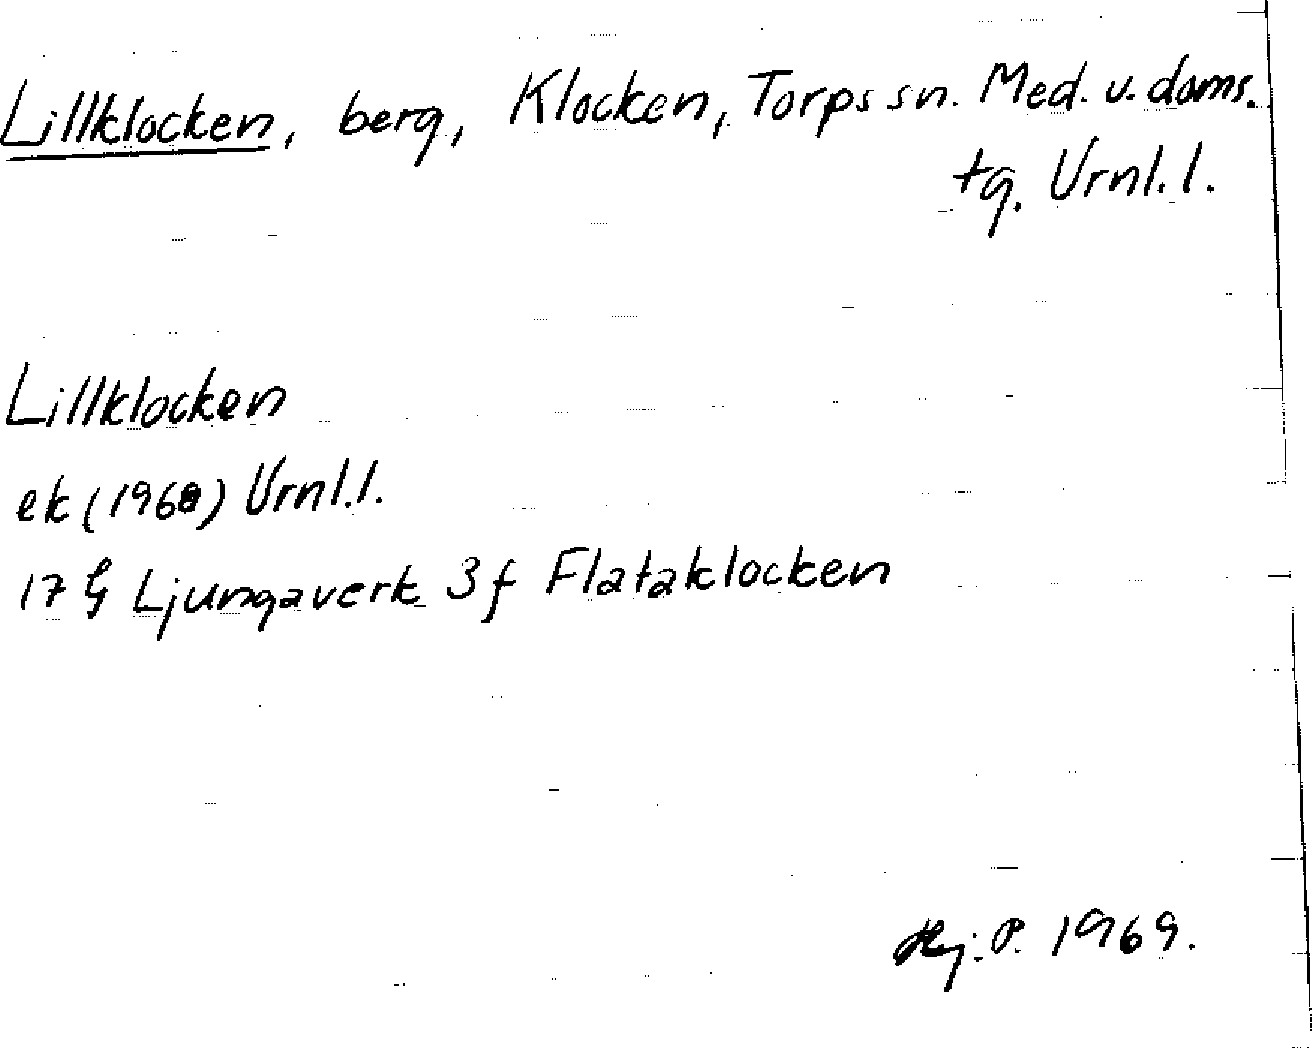 Lillklocken, berg, Klocken, Torps sn. Med. v. doms.
tg. Vrnl. l.
Lillklocken
ek (1968) Vrnl. l.
17 G Ljungaverk 3f Flataklocken
Hj. P. 1969.